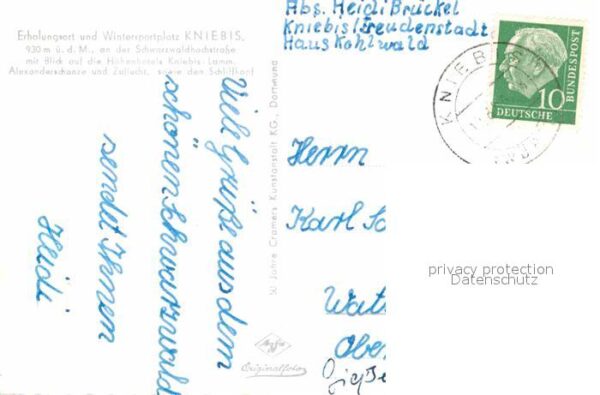 Erholungsort und Wintersportplatz KNIEBIS,
930 m ü. d. M., an der Schwarzwaldhochstraße
mit Blick auf die Höhenhotels Kniebis-Lamm,
Alexanderschanze und Zuflucht, sowie den Schliffkopf
Abs. Heidi Brückel
Kniebis/Freudenstadt
Haus Kohlwald
10
DEUTSCHE
BUNDESPOST
KNIEB
Viele Grüße aus dem
schönen Schwarzwald
sendet Ihnen
Heidi
50 Jahre Cramers Kunstanstalt KG., Dortmund
Agfa
Originalfoto
Herrn
Karl
privacy protection
Datenschutz